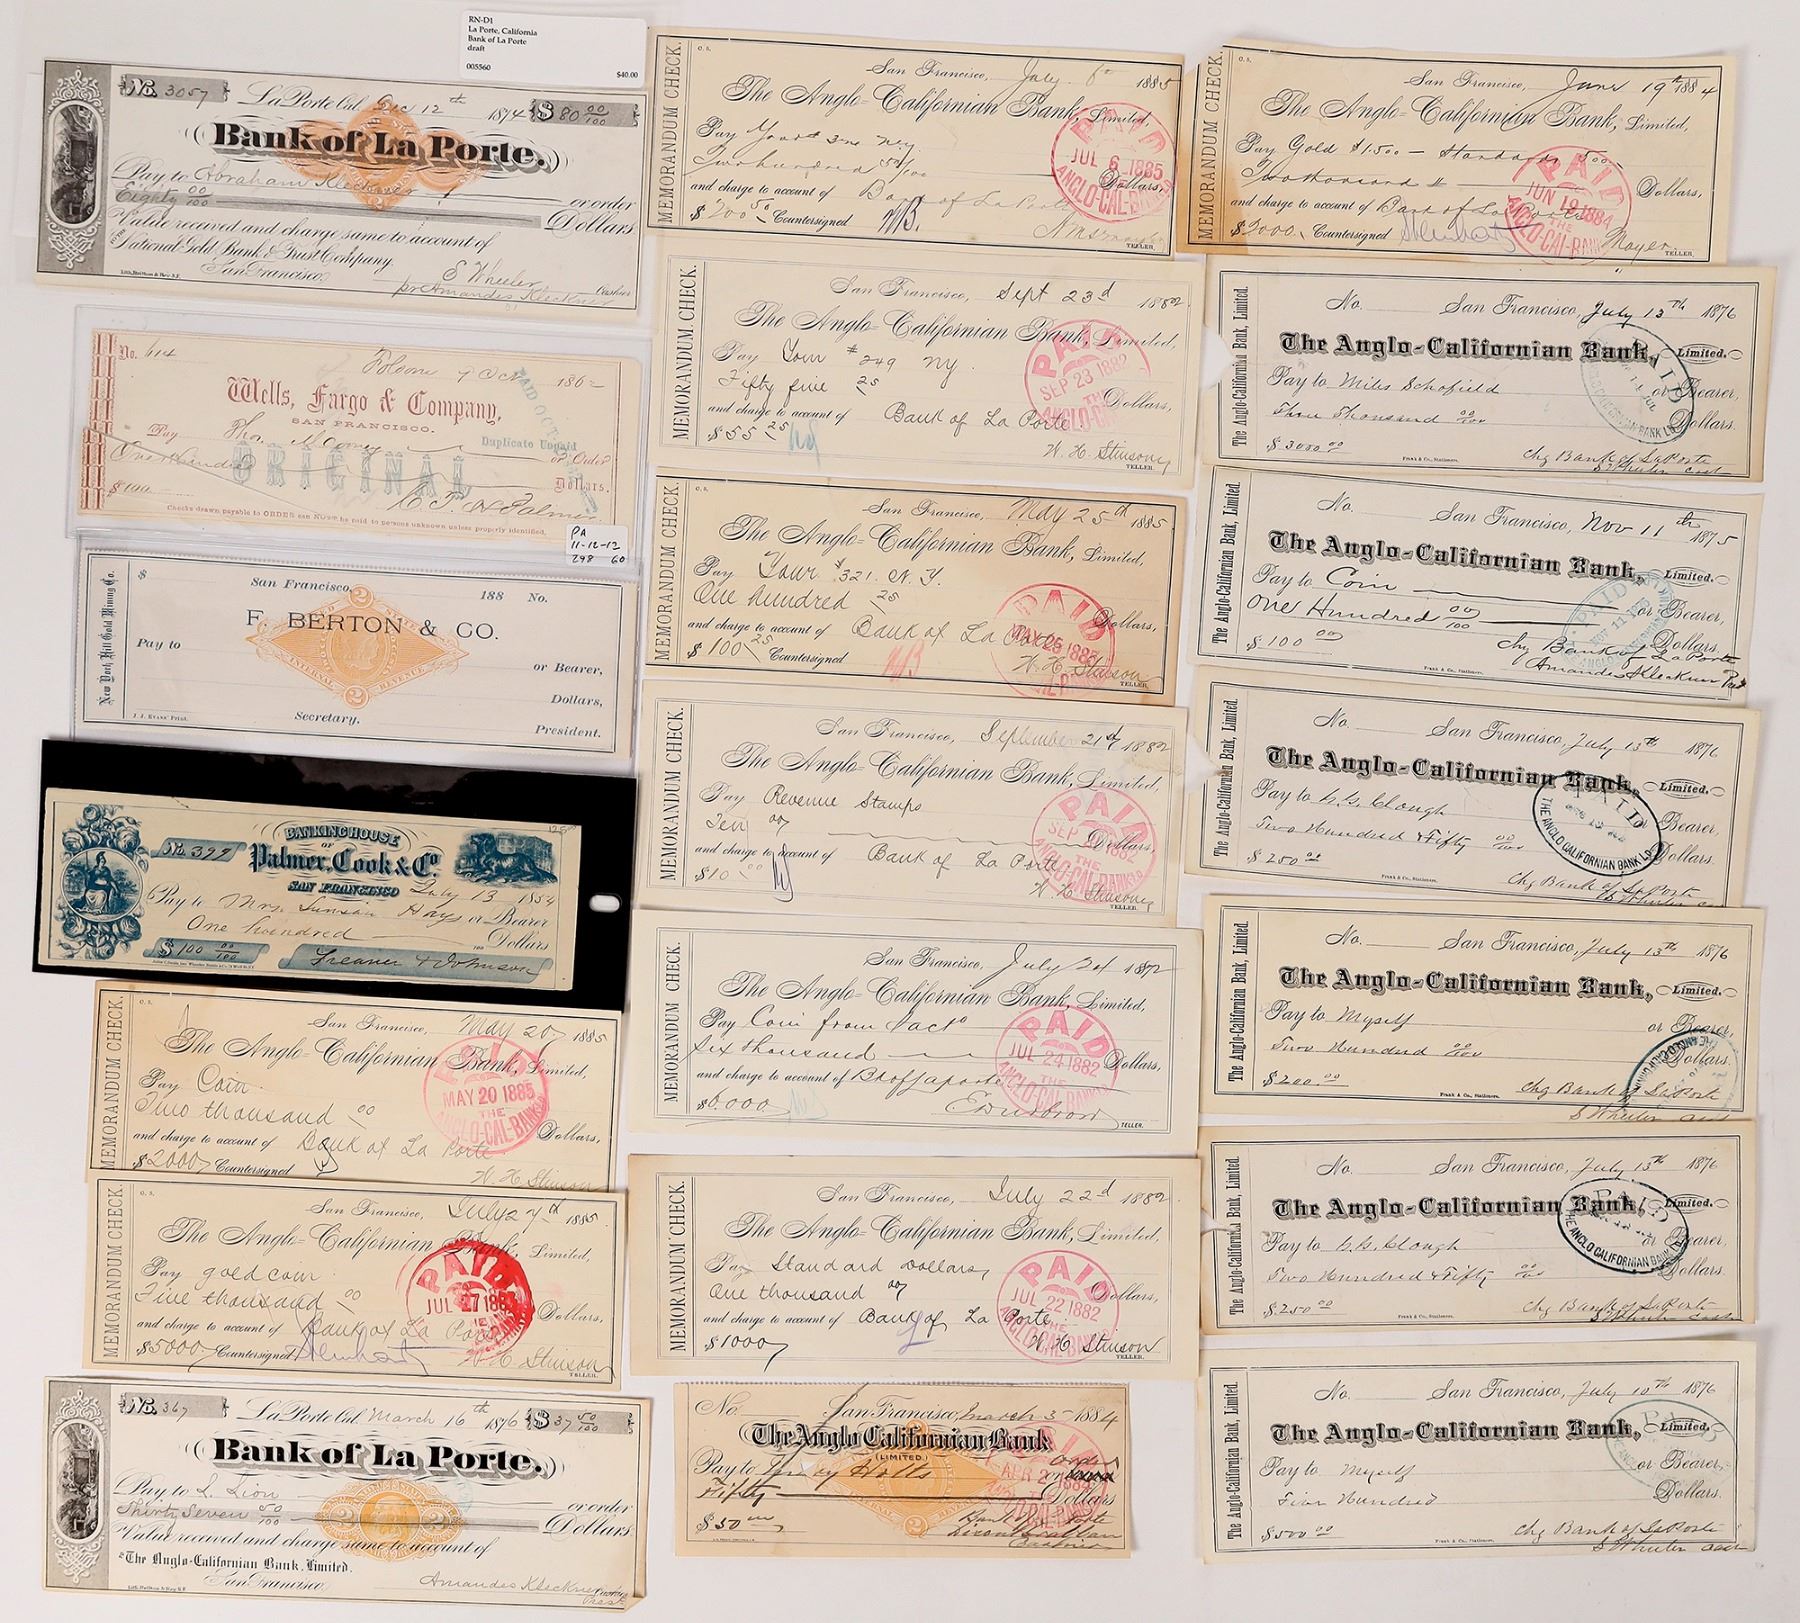 RN-D1
La Porte, California
Bank of La Porte
draft
005560 $40.00
No. 3057
La Porte Cal. Dec 12th 1874 $80 00/100
Bank of La Porte.
Pay to Abraham Kleckner or order
Eighty 00/100 Dollars
Value received and charge same to account of
National Gold Bank & Trust Company
San Francisco.
E Wheeler Cashier
pr Amandes Kleckner
No. 614
Folsom 9 Oct 1862
Wells, Fargo & Company,
SAN FRANCISCO.
Pay Tho. or Order
Duplicate Unpaid
ORIGINAL
One Hundred Dollars.
$100
Checks drawn payable to ORDER can NOT be paid to persons unknown unless properly identified.
PA
11-12-12
298 60
New York Hill Gold Mining Co.
$ San Francisco, 188 No.
F. BERTON & CO.
Pay to
or Bearer,
Dollars,
Secretary.
President.
INTERNAL REVENUE
J. J. EVANS' Print.
No. 399
BANKING HOUSE
OF
Palmer, Cook & Co.
SAN FRANCISCO July 13 1854
Pay to Mrs. Hays or Bearer
One hundred Dollars
$100 00/100 Freaner & Johnson
MEMORANDUM CHECK.
San Francisco, May 20 1885
The Anglo-Californian Bank, Limited,
Pay Coin
Two thousand 00 Dollars,
and charge to account of Bank of La Porte
$2000 Countersigned W. H. Stinson
PAID
MAY 20 1885
THE
ANGLO-CAL-BANK
MEMORANDUM CHECK.
San Francisco, July 27th 1885
The Anglo-Californian Bank, Limited,
Pay gold coin
Five thousand 00 Dollars,
and charge to account of Bank of La Porte
$5000 Countersigned W. H. Stinson
TELLER.
PAID
JUL 27 1885
No. 367
La Porte Cal. March 16th 1876 $37 50/100
Bank of La Porte.
Pay to S. Lion or order
Thirty Seven 50/100 Dollars
Value received and charge same to account of
The Anglo-Californian Bank, Limited.
San Francisco.
Amandes Kleckner
MEMORANDUM CHECK.
San Francisco, July 6th 1885
The Anglo-Californian Bank, Limited,
Pay
Two hundred 50/100 Dollars,
and charge to account of Bank of La Porte
$200 50 Countersigned
TELLER.
PAID
JUL 6 1885
ANGLO-CAL-BANK
MEMORANDUM CHECK.
San Francisco, Sept 23d 1882
The Anglo-Californian Bank, Limited,
Pay Your #249 NY
Fifty five 25 Dollars,
and charge to account of Bank of La Porte
$55 25 W. H. Stinson
TELLER.
PAID
SEP 23 1882
MEMORANDUM CHECK.
San Francisco, May 25th 1885
The Anglo-Californian Bank, Limited,
Pay Your #321. N.Y.
One hundred 25 Dollars,
and charge to account of Bank of La Porte
$100 25 Countersigned W. H. Stinson
TELLER.
PAID
MAY 25 1885
MEMORANDUM CHECK.
San Francisco, September 21st 1882
The Anglo-Californian Bank, Limited,
Pay Revenue Stamps
Ten 00 Dollars,
and charge to account of Bank of La Porte
$10 00 W. H. Stinson
TELLER.
PAID
MEMORANDUM CHECK.
San Francisco, July 24 1872
The Anglo-Californian Bank, Limited,
Pay Coin from
Six thousand Dollars,
and charge to account of Bk of Laporte
$6,000
TELLER.
PAID
JUL 24 1882
THE
ANGLO-CAL-BANK
MEMORANDUM CHECK.
San Francisco, July 22d 1882
The Anglo-Californian Bank, Limited,
Pay Standard Dollars,
One thousand 00 Dollars,
and charge to account of Bank of La Porte
$1000 W. H. Stinson
TELLER.
PAID
JUL 22 1882
THE
No. San Francisco, March 3 1884
The Anglo Californian Bank
(LIMITED.)
Pay to Holts or order
Fifty Dollars
$50
Bank of La Porte
MEMORANDUM CHECK.
San Francisco, June 19th 1884
The Anglo-Californian Bank, Limited,
Pay Gold $1.500 - Standards 500
Two thousand Dollars,
and charge to account of Bank of La Porte
$2000 Countersigned Mayer
TELLER.
PAID
JUN 19 1884
THE
ANGLO-CAL-BANK
The Anglo-Californian Bank, Limited.
No. San Francisco, July 13th 1876
The Anglo-Californian Bank, Limited.
Pay to Miles Schofield or Bearer,
Three Thousand 00/100 Dollars.
$3000 00 Chg Bank of LaPorte
Frank & Co., Stationers. E Wheeler Cash
The Anglo-Californian Bank, Limited.
No. San Francisco, Nov 11th 1875
The Anglo-Californian Bank, Limited.
Pay to Coin or Bearer,
One Hundred 00/100 Dollars.
$100 00 Chg Bank of LaPorte
Frank & Co., Stationers. Amandes Kleckner Pres
The Anglo-Californian Bank, Limited.
No. San Francisco, July 13th 1876
The Anglo-Californian Bank, Limited.
Pay to Clough or Bearer,
Two Hundred & Fifty 00/100 Dollars.
$250 00 Chg Bank of LaPorte
Frank & Co., Stationers. E Wheeler Cash
PAID
THE ANGLO CALIFORNIAN BANK LD.
The Anglo-Californian Bank, Limited.
No. San Francisco, July 13th 1876
The Anglo-Californian Bank, Limited.
Pay to Myself or Bearer,
Two Hundred 00/100 Dollars.
$200 00 Chg Bank of LaPorte
Frank & Co., Stationers. E Wheeler Cash
The Anglo-Californian Bank, Limited.
No. San Francisco, July 13th 1876
The Anglo-Californian Bank, Limited.
Pay to Clough or Bearer,
Two Hundred & Fifty 00/100 Dollars.
$250 00 Chg Bank of LaPorte
Frank & Co., Stationers. E Wheeler Cash
PAID
THE ANGLO CALIFORNIAN BANK LD.
The Anglo-Californian Bank, Limited.
No. San Francisco, July 10th 1876
The Anglo-Californian Bank, Limited.
Pay to Myself or Bearer,
Five Hundred Dollars.
$500 00 Chg Bank of LaPorte
Frank & Co., Stationers. E Wheeler Cash